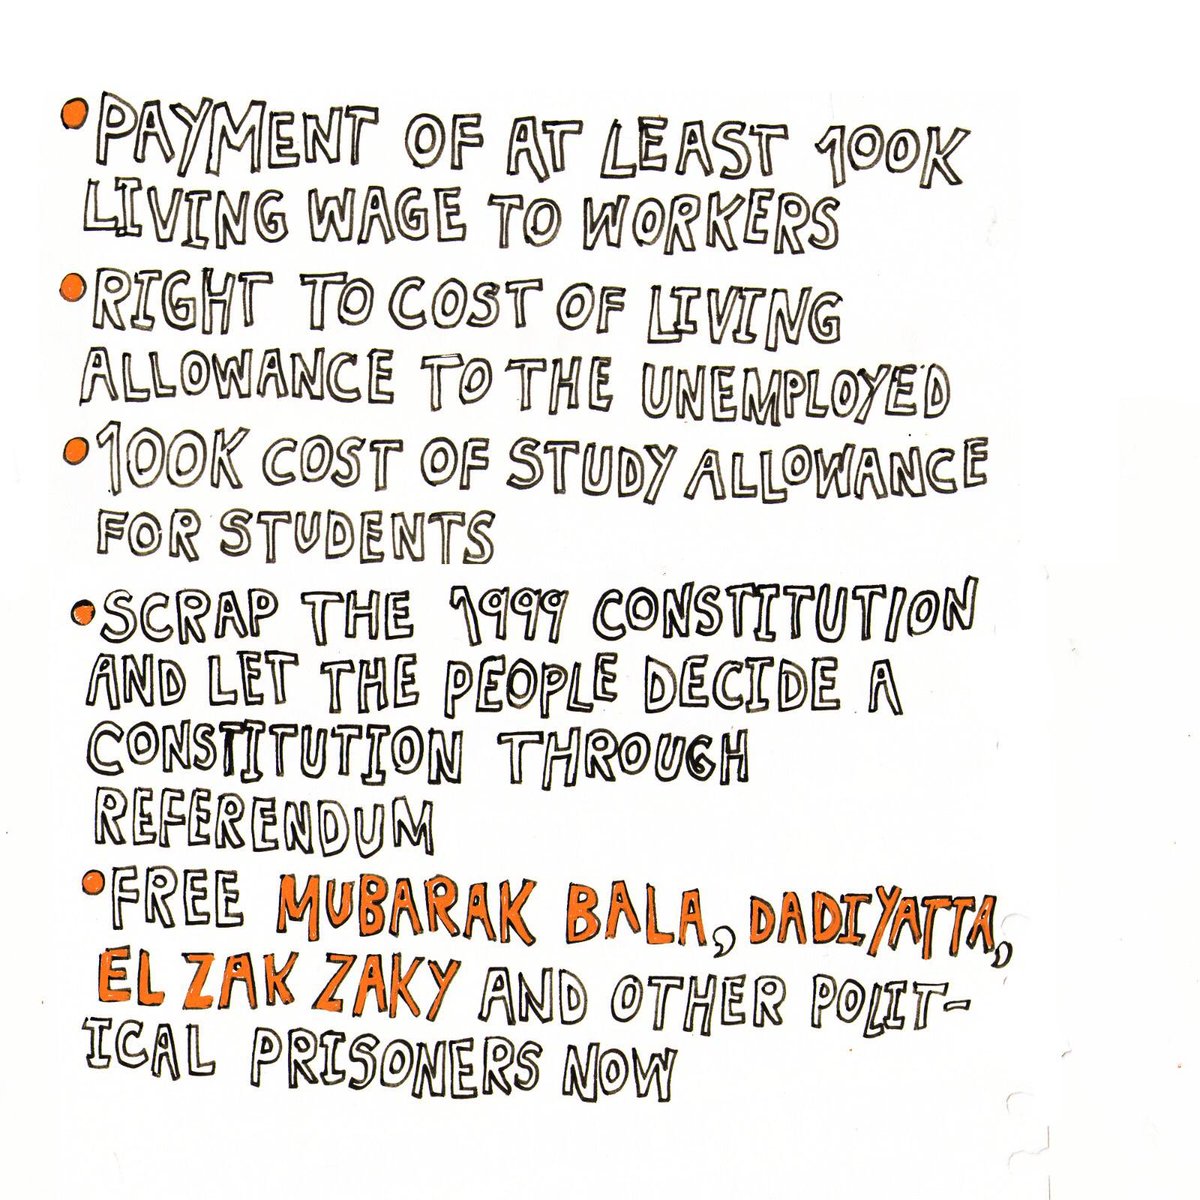 • PAYMENT OF AT LEAST 100K
LIVING WAGE TO WORKERS
• RIGHT TO COST OF LIVING
ALLOWANCE TO THE UNEMPLOYED
• 100K COST OF STUDY ALLOWANCE
FOR STUDENTS
• SCRAP THE 1999 CONSTITUTION
AND LET THE PEOPLE DECIDE A
CONSTITUTION THROUGH
REFERENDUM
• FREE MUBARAK BALA, DADIYATTA,
EL ZAK ZAKY AND OTHER POLIT-
ICAL PRISONERS NOW